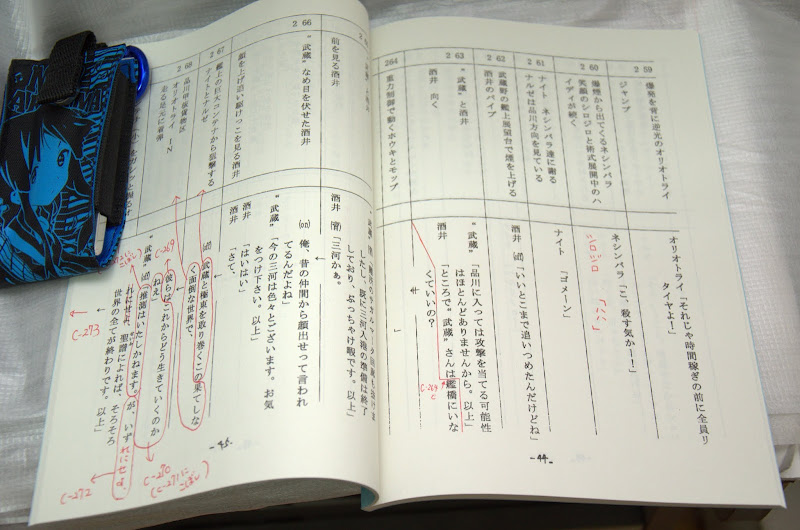 2 59
爆発を背に逆光のオリオトライ
ジャンプ
オリオトライ「それじゃ時間稼ぎの前に全員リ
タイヤよ!」
2 60
爆煙から出てくるネシンバラ
笑顔のシロジロと術式展開中のハ
イディが続く
ネシンバラ「こ、殺す気かー!」
シロジロ「ハハハ」
2 61
ナイト ネシンバラ達に謝る
ナルゼは品川方向を見ている
ナイト 「ゴメーン」
2 62
武蔵野の艦上展望台で煙を上げる
酒井のパイプ
酒井 (off)「いいとこまで追いつめたんだけどね」
2 63
“武蔵”と酒井
酒井 向く
“武蔵”「品川に入っては攻撃を当てる可能性
はほとんどありませんから。以上」
酒井 「ところで“武蔵”さんは艦橋にいな
くていいの?
C-264
264
重力制御で動くホウキとモップ
」
-44-
した。後に三河入港の準備は終了
しており、ぶっちゃけ暇です。以上」
前を見る酒井
酒井 (背)「三河かぁ。
2 66
“武蔵”なめ目を伏せた酒井
(on) 俺、昔の仲間から顔出せって言われ
てるんだよね」
“武蔵”「今の三河は色々とございます。お気
をつけ下さい。以上」
顔を上げ追い駆けっこを見る酒井
酒井 「はいはい」
酒井 「さて、
2 67
艦上の巨大コンテナから狙撃する
ナイトとナルゼ
(off) 武蔵と極東を取り巻くこの果てしな
く面倒な世界で、
2 68
品川甲板貨物区
オリオトライ IN
走る足元に着弾
C-269
彼らはこれからどう生きていくのか
ねえ」
“武蔵”(off)「推測はいたしかねます。が、いず
れにせよ、聖譜によれば、そろそろ
世界の全てが終わりです。以上」
れにせよ
C-270
(C-271にこぼし)
C-272
C-273
-45-